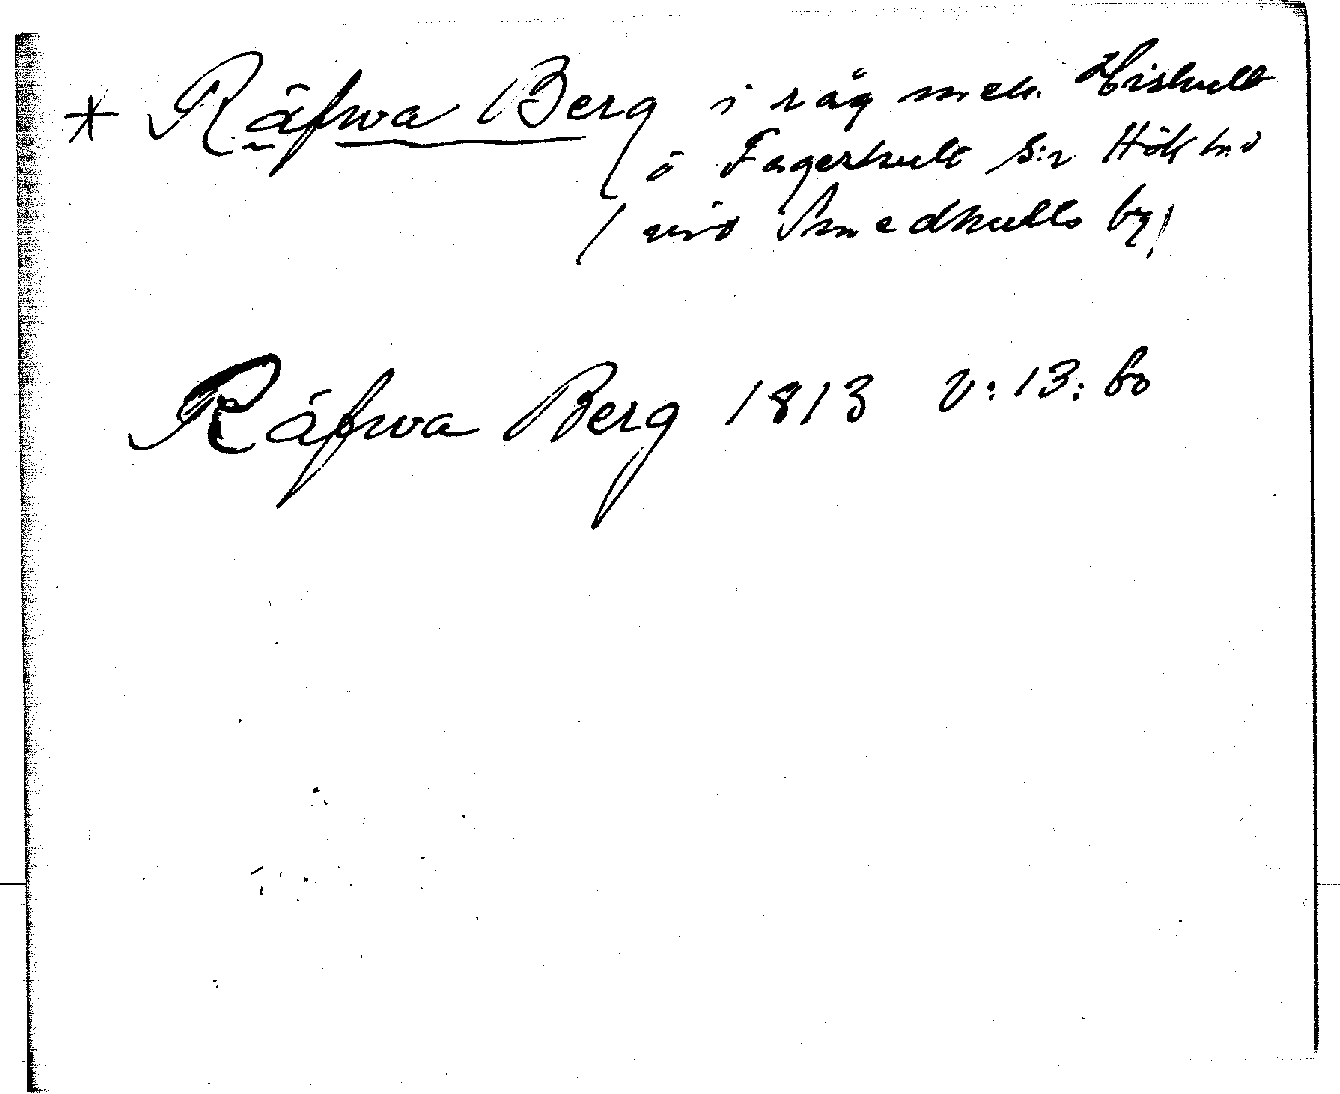 * Räfwa Berg i råg mell. Hishult
o Fagerhult S:r Höks hd
/ vid Smedhults by /
Räfwa Berg 1813 V: 13: bo